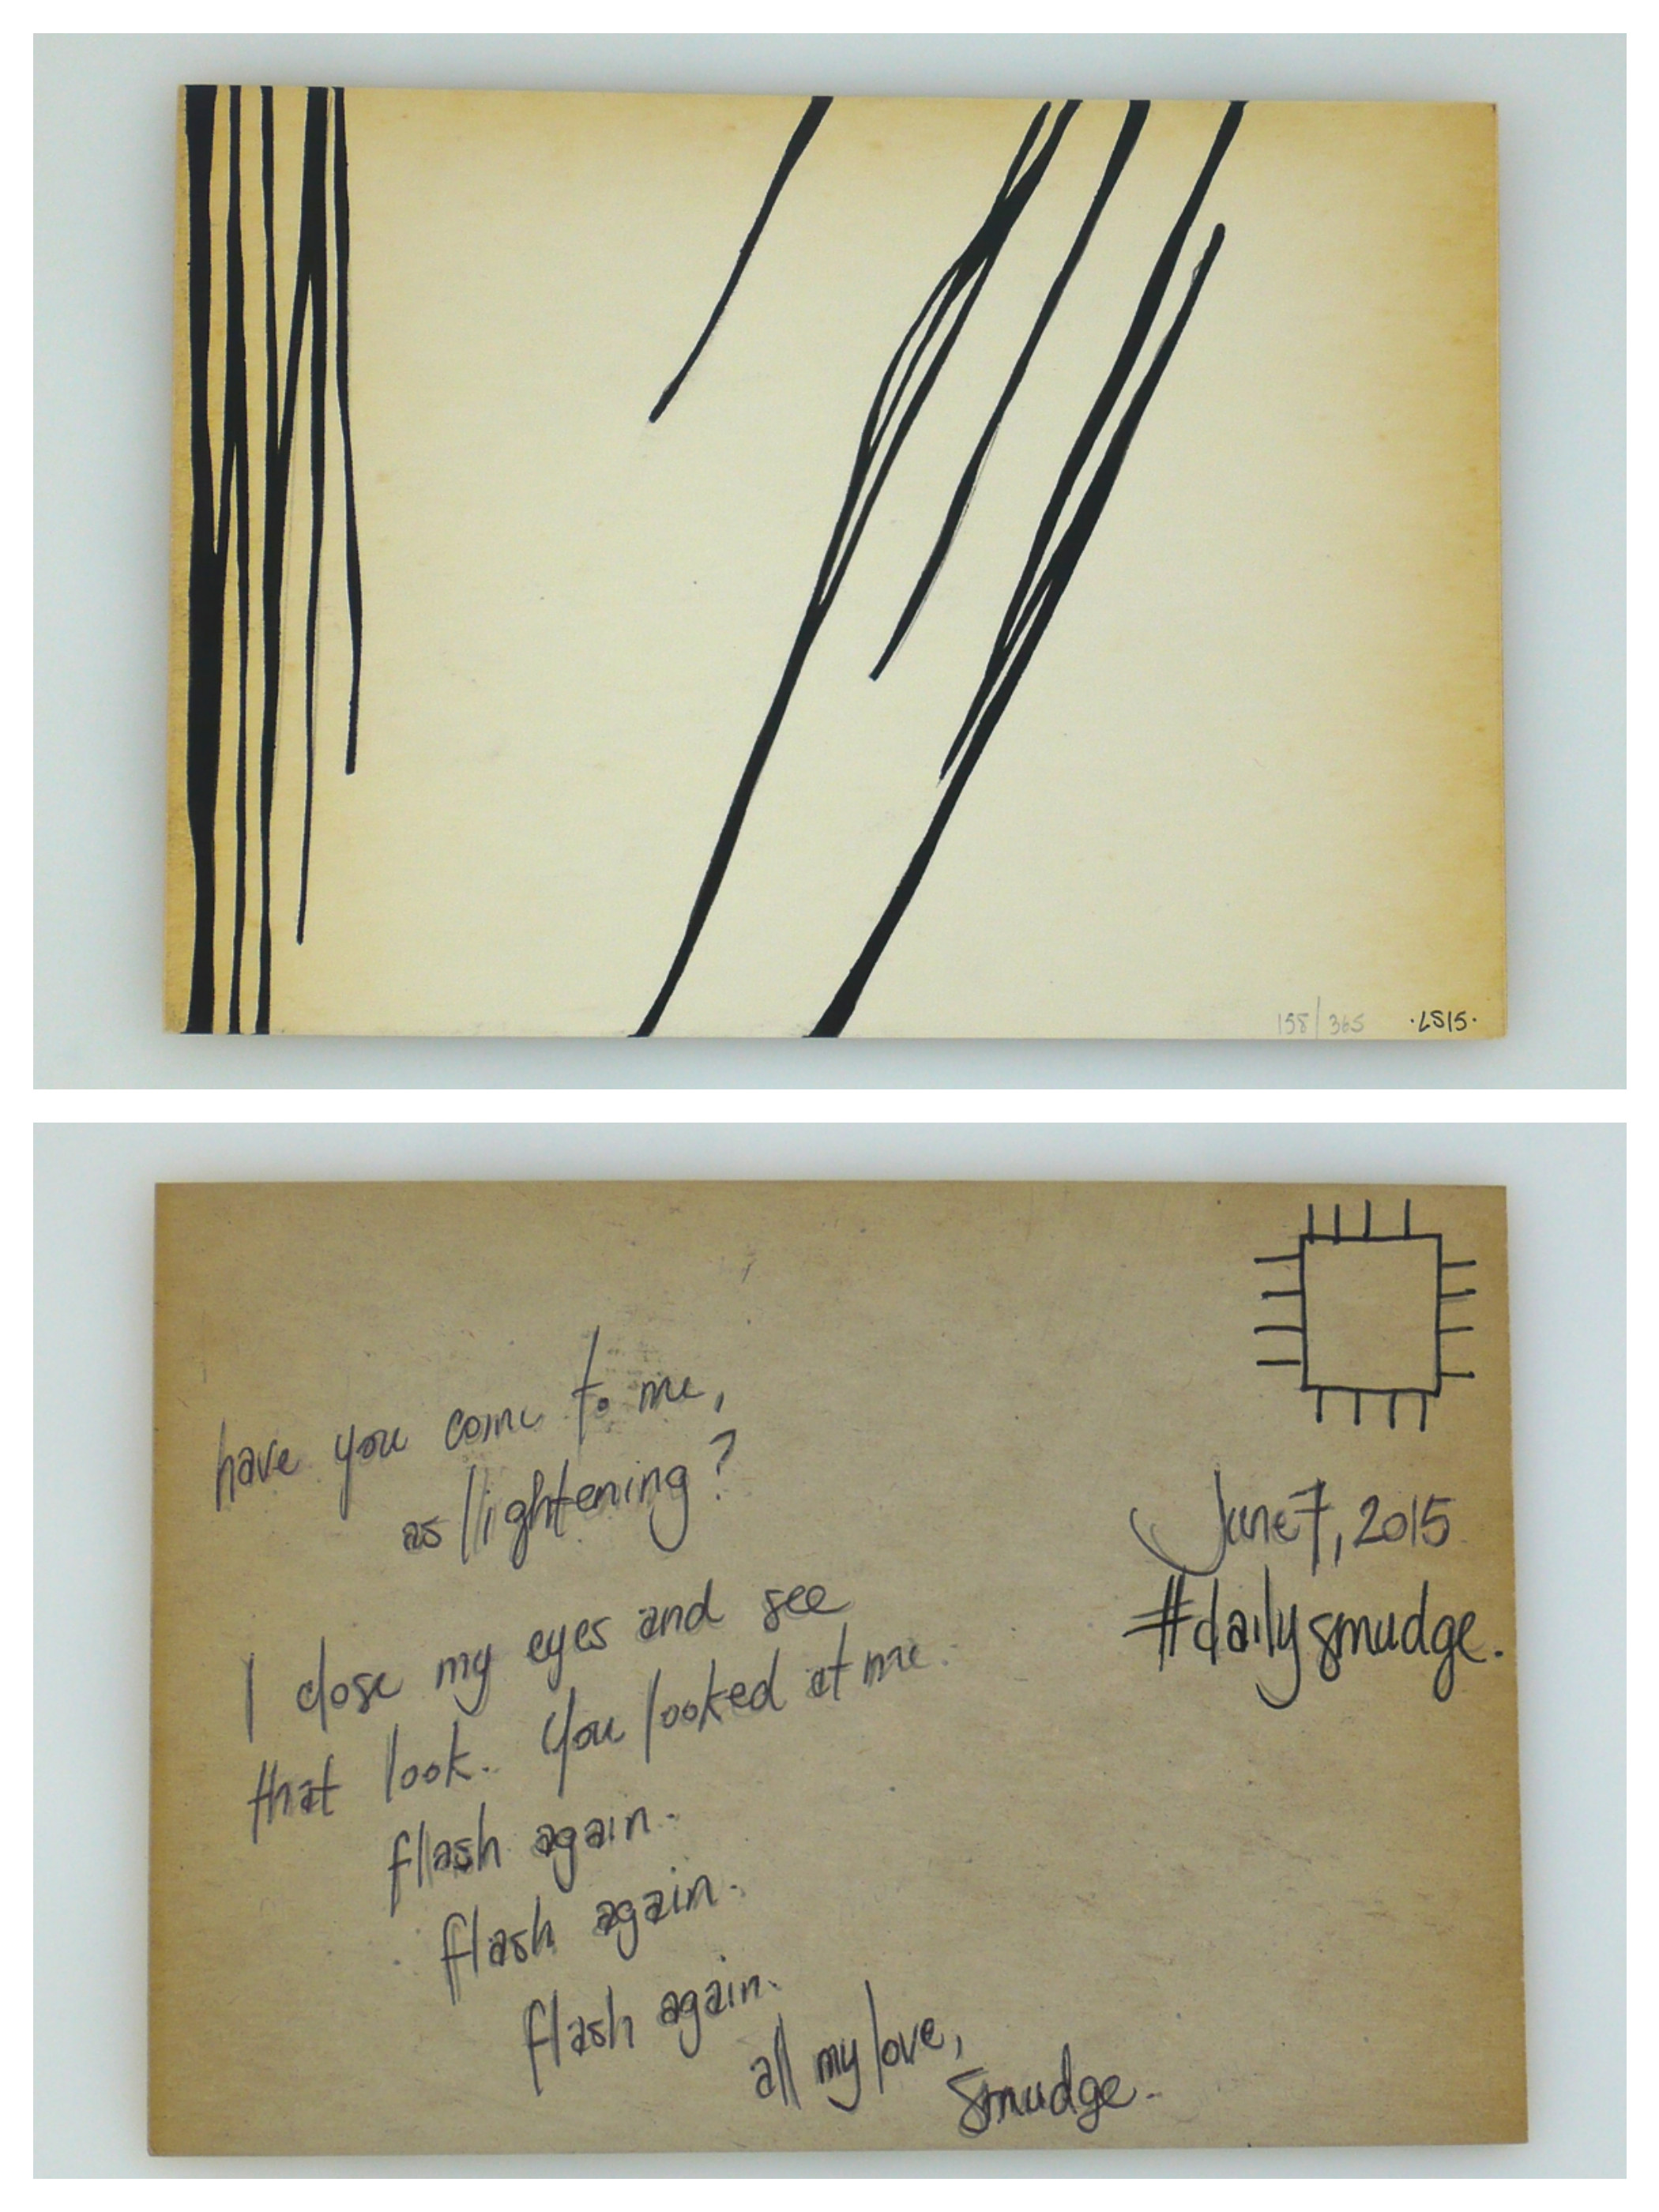 158/365 ·LS15·
have you come to me,
as lightening?
I close my eyes and see
that look. You looked at me.
flash again.
flash again.
flash again.
all my love,
Smudge.
June 7, 2015
#dailysmudge.